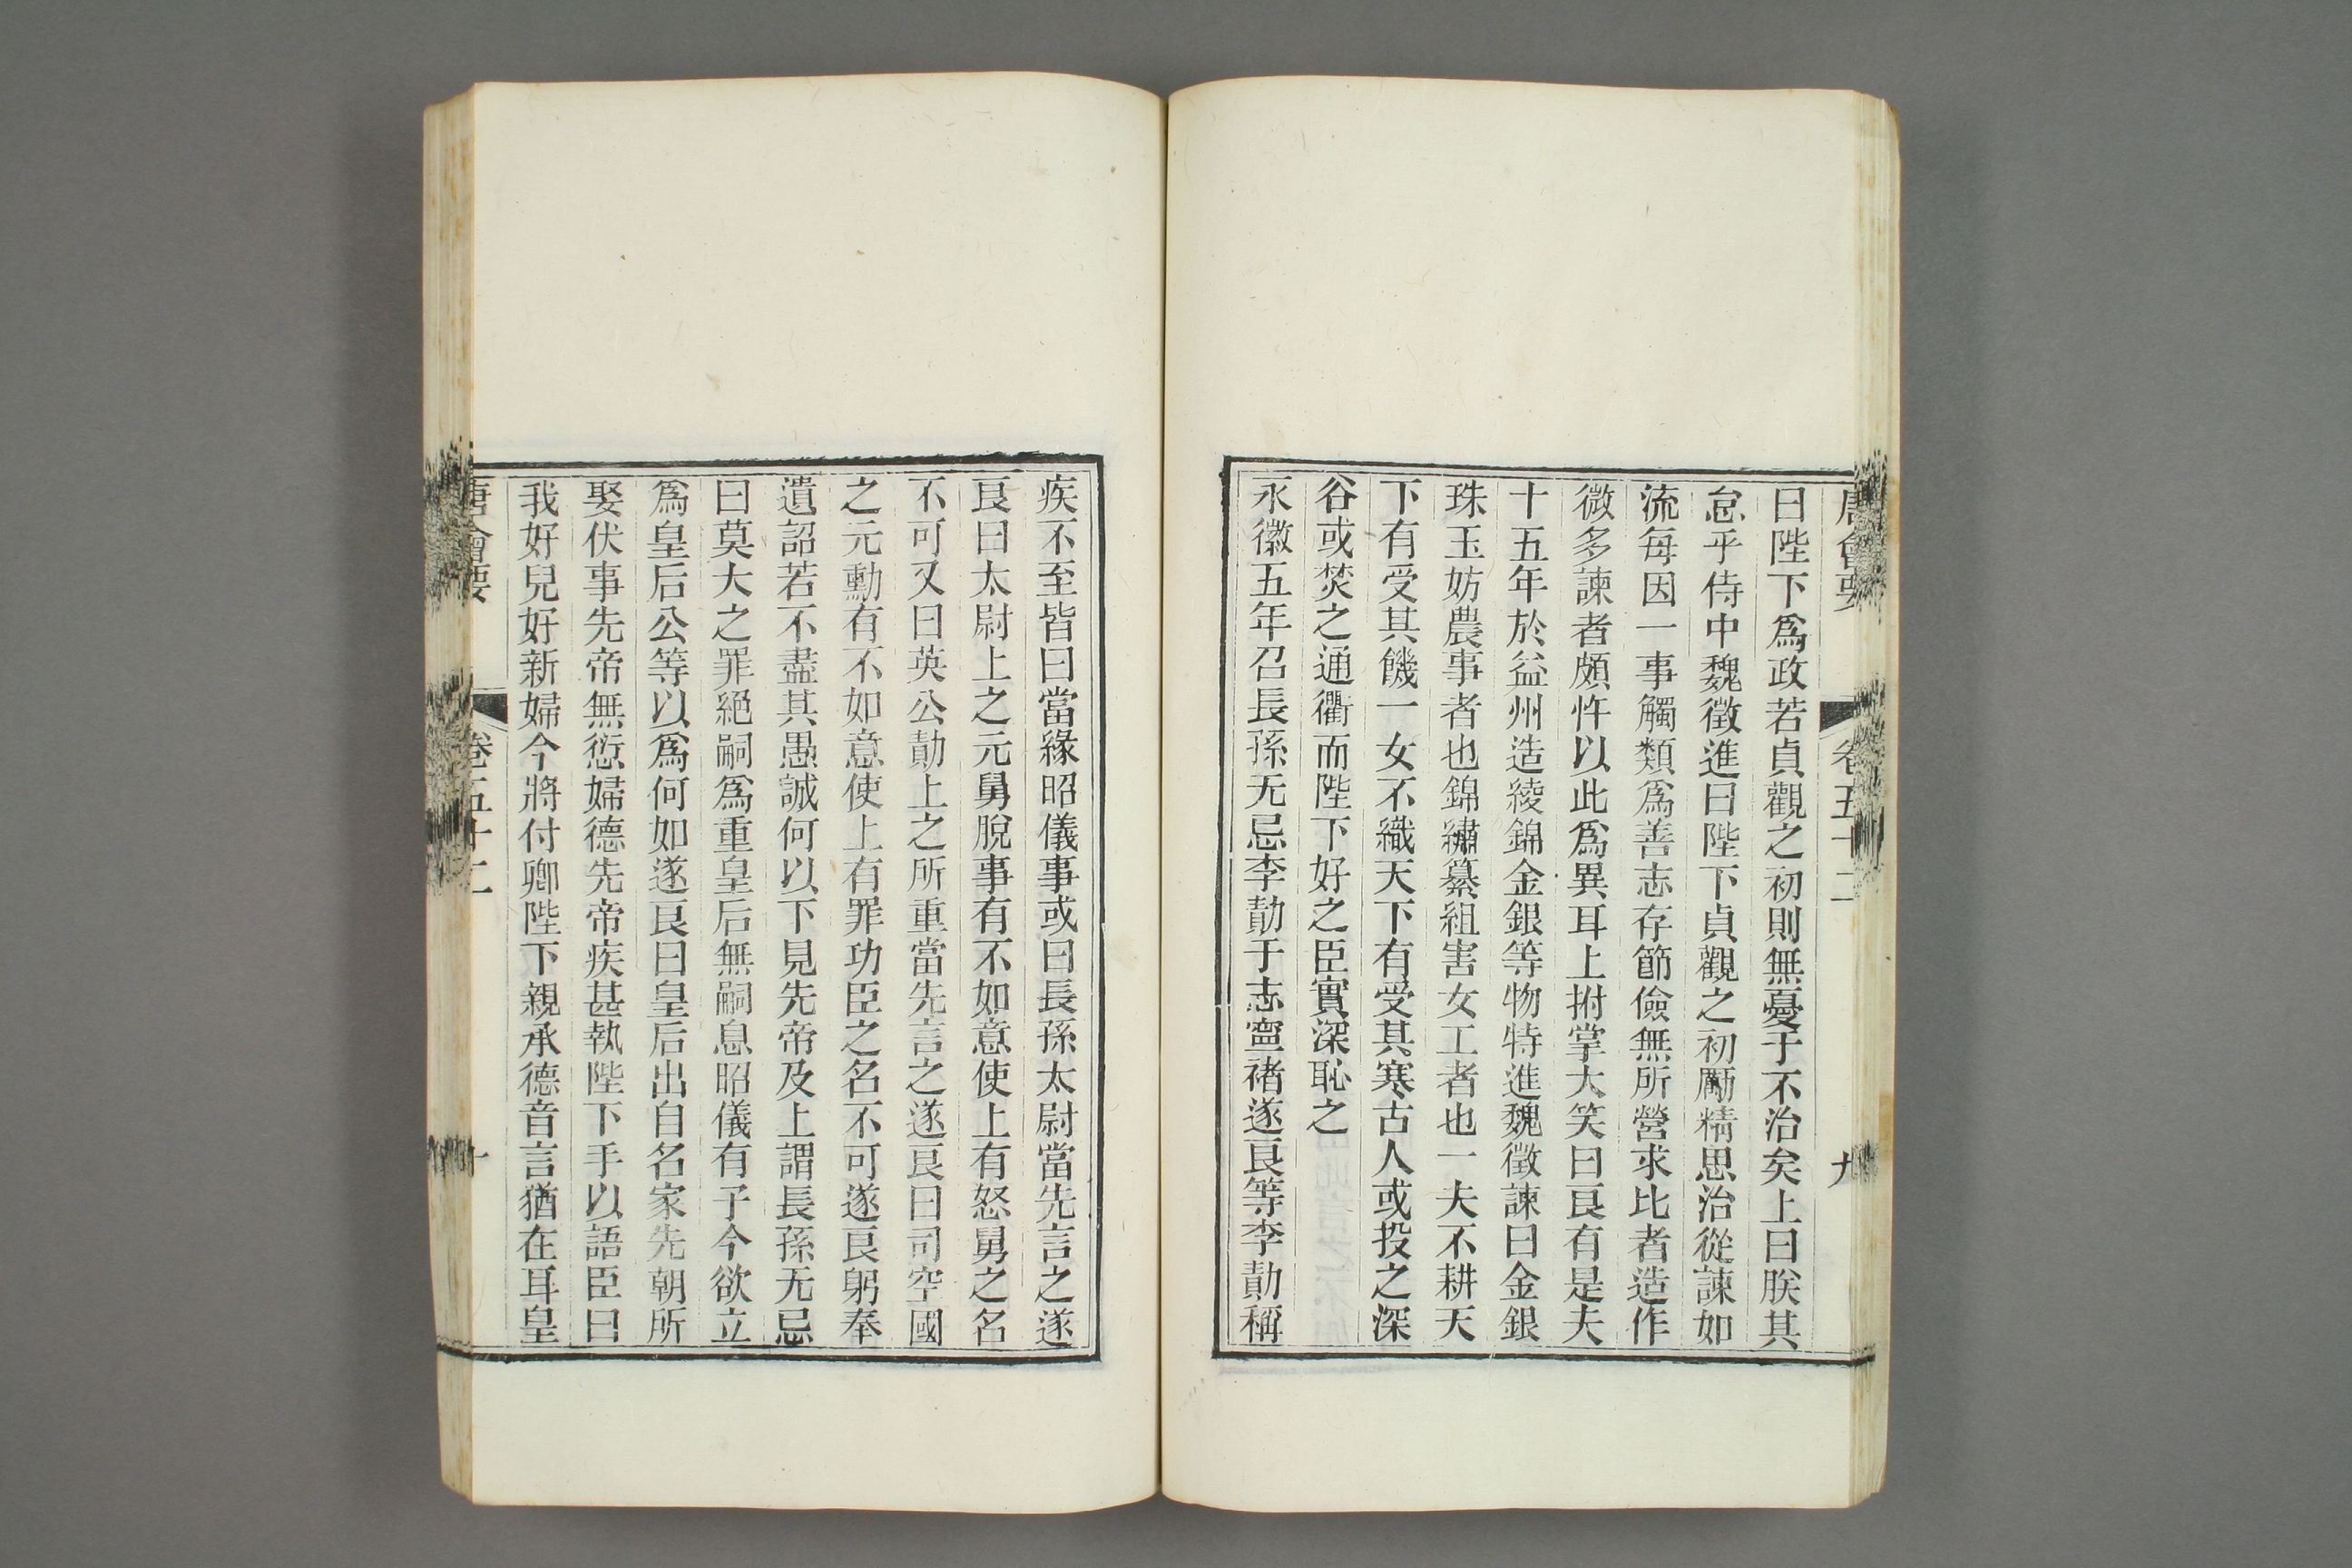 唐會要 卷五十二 九
曰陛下爲政若貞觀之初則無憂于不治矣上曰朕其
怠乎侍中魏徵進曰陛下貞觀之初勵精思治從諫如
流每因一事觸類爲善志存節儉無所營求比者造作
微多諫者頗忤以此爲異耳上拊掌大笑曰良有是夫
十五年於益州造綾錦金銀等物特進魏徵諫曰金銀
珠玉妨農事者也錦繡纂組害女工者也一夫不耕天
下有受其饑一女不織天下有受其寒古人或投之深
谷或焚之通衢而陛下好之臣實深恥之
永徽五年召長孫无忌李勣于志寧褚遂良等李勣稱
疾不至皆曰當緣昭儀事或曰長孫太尉當先言之遂
良曰太尉上之元舅脫事有不如意使上有怒舅之名
不可又曰英公勣上之所重當先言之遂良曰司空國
之元勳有不如意使上有罪功臣之名不可遂良躬奉
遺詔若不盡其愚誠何以下見先帝及上謂長孫无忌
曰莫大之罪絕嗣爲重皇后無嗣息昭儀有子今欲立
爲皇后公等以爲何如遂良曰皇后出自名家先朝所
娶伏事先帝無愆婦德先帝疾甚執陛下手以語臣曰
我好兒好新婦今將付卿陛下親承德音言猶在耳皇
唐會要 卷五十二 十